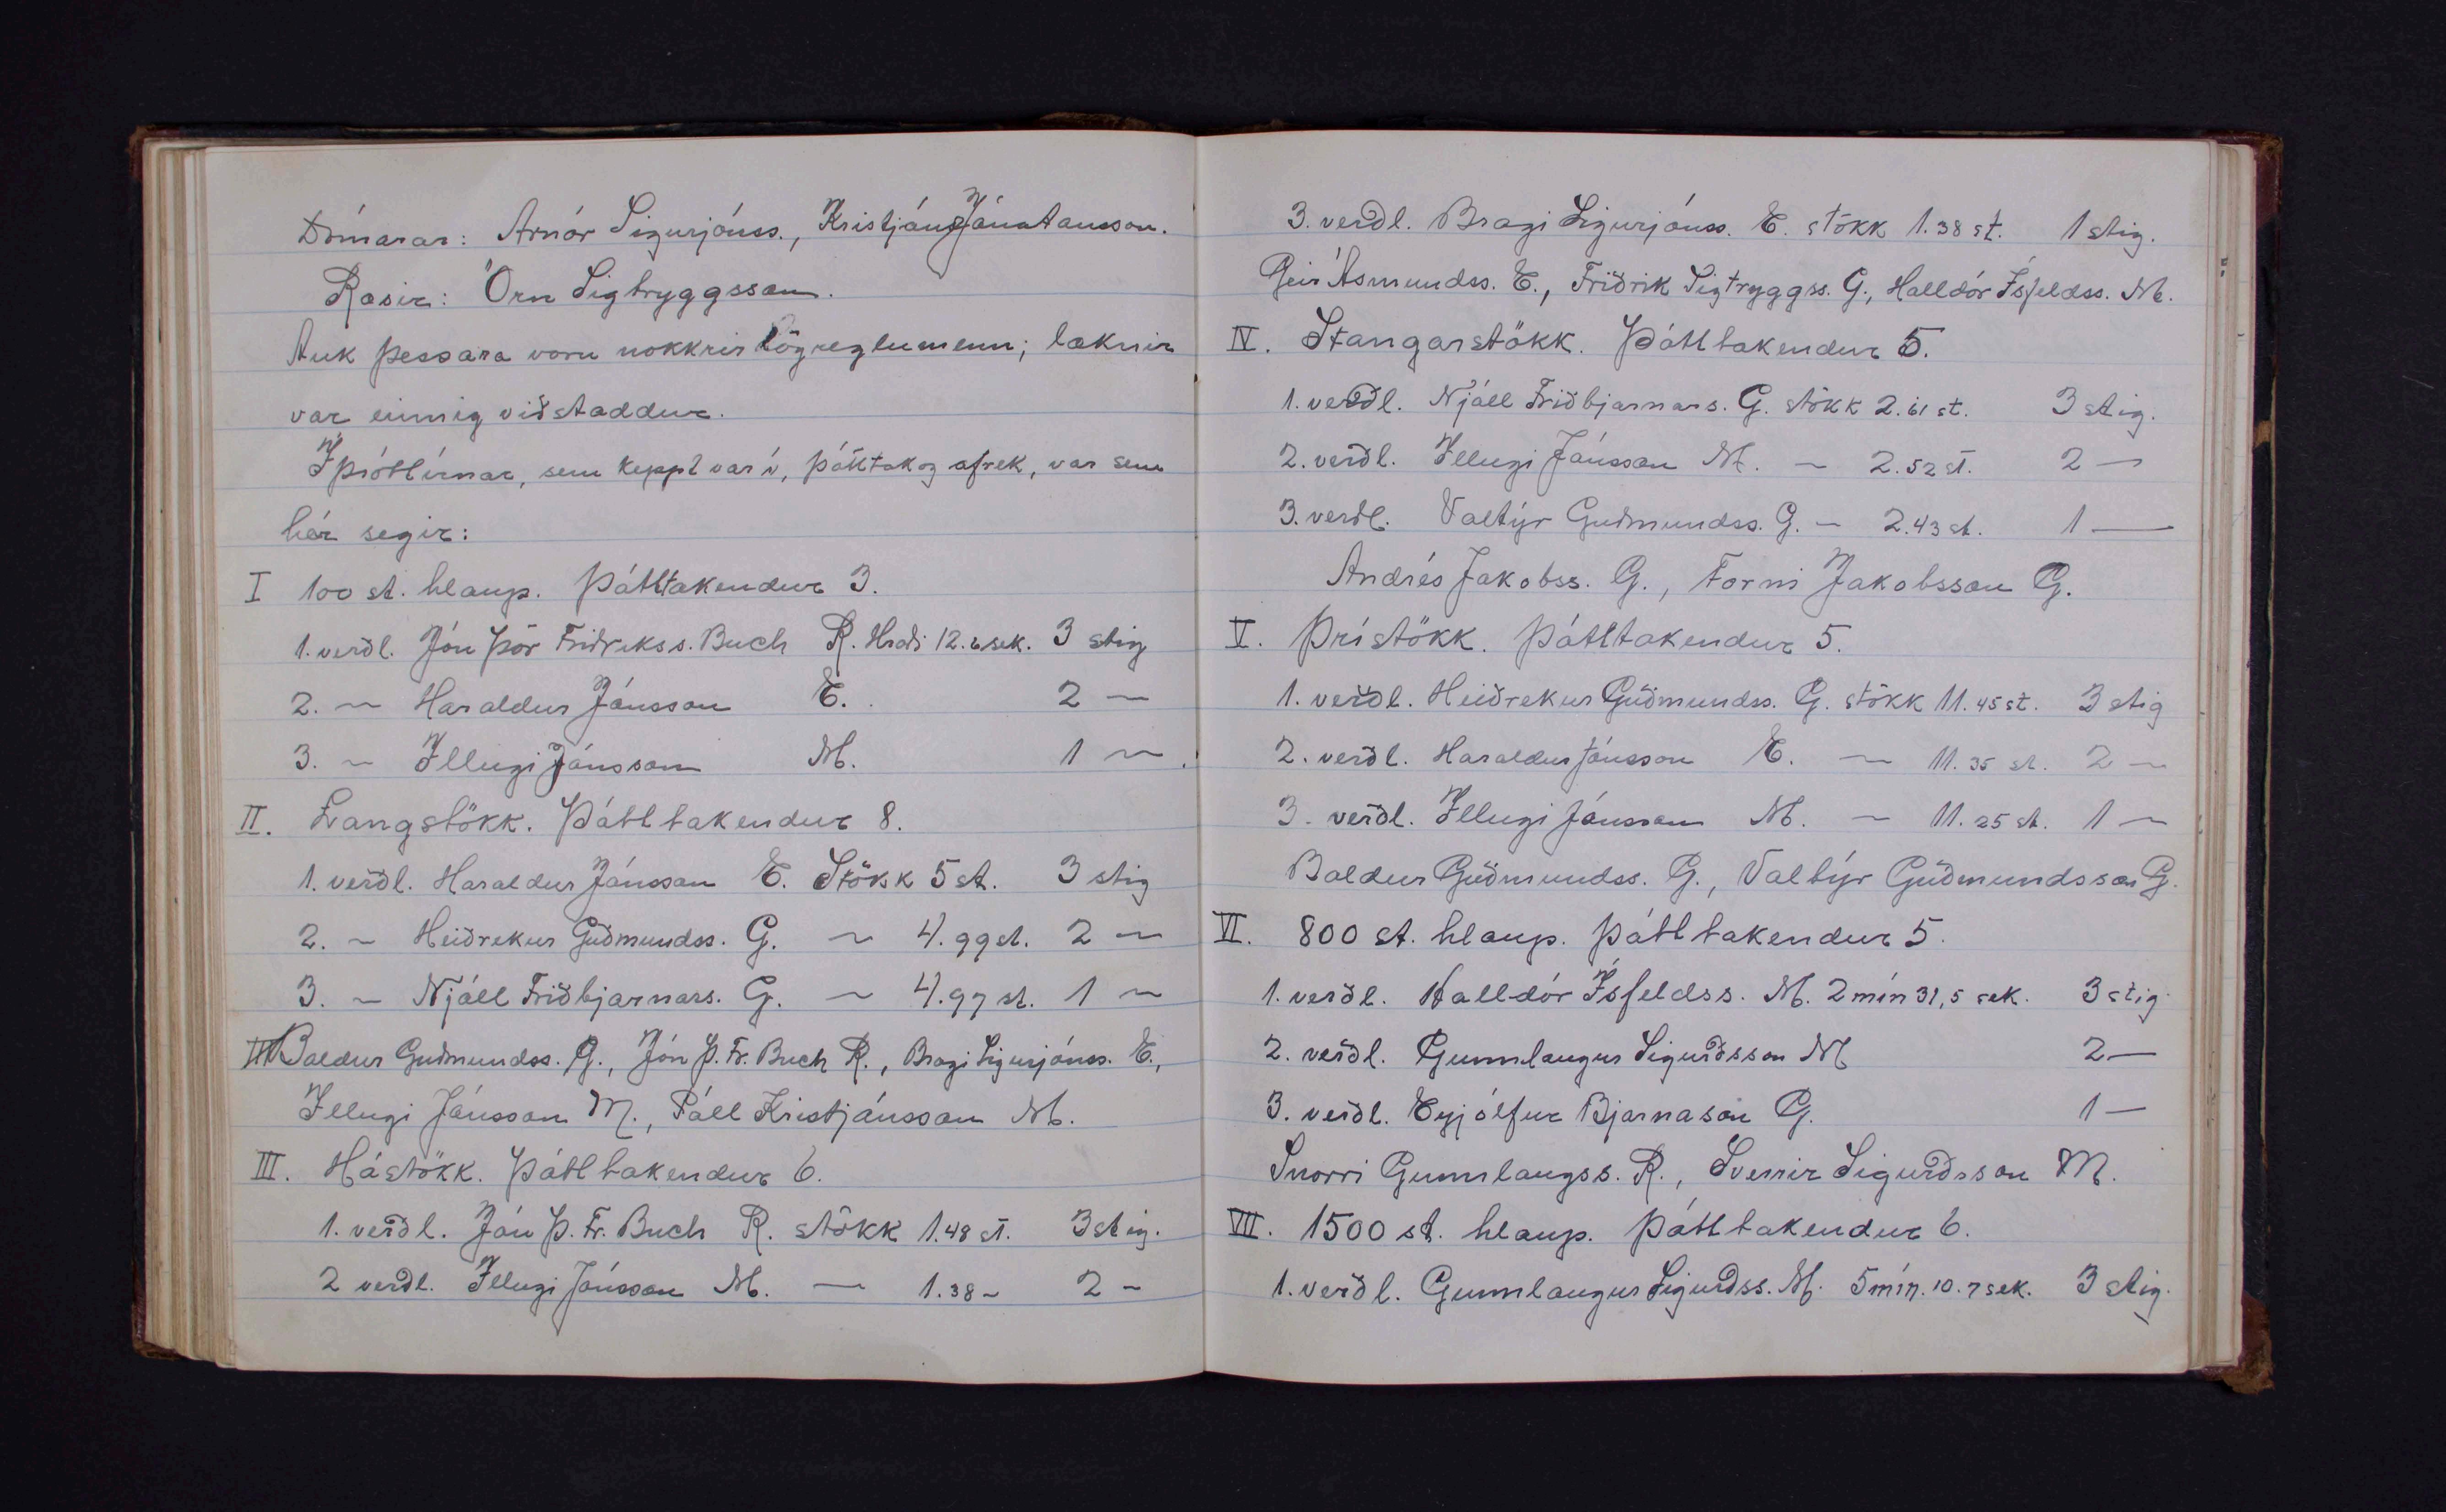 Dómarar: Arnór Sigurjónss., Kristján Jónatansson.
Ræsir: Örn Sigtryggsson.
Auk þessara voru nokkrir lögreglumenn; læknir
var einnig viðstaddur.
Íþróttirnar, sem keppt var í, þátttak og afrek, var sem
hér segir:
I 100 st. hlaup. Þátttakendur 3.
1. verðl. Jón Þór Friðrikss. Buch R. Hraði 12.6 sek. 3 stig
2. ~ Haraldur Jónsson E. 2 ~
3. ~ Illugi Jónsson M. 1 ~
II. Langstökk. Þátttakendur 8.
1. verðl. Haraldur Jónsson E. Stökk 5 st. 3 stig
2. ~ Heiðrekur Guðmundss. G. ~ 4.99 st. 2 ~
3. ~ Njáll Friðbjarnars. G. ~ 4.97 st. 1 ~
Baldur Guðmundss. G., Jón Þ. Fr. Buch R., Bragi Sigurjónss. E.,
Illugi Jónsson M., Páll Kristjánsson M.
III. Hástökk. Þátttakendur 6.
1. verðl. Jón Þ. Fr. Buch R. stökk 1.48 st. 3 stig.
2 verðl. Illugi Jónsson M. — 1.38 ~ 2 -
3. verðl. Bragi Sigurjónss. E. stökk 1.38 st. 1 stig.
Geir Ásmundss. E., Friðrik Sigtryggss. G., Halldór Ísfeldss. M.
IV. Stangarstökk. Þátttakendur 5.
1. verðl. Njáll Friðbjarnars. G. stökk 2.61 st. 3 stig.
2. verðl. Illugi Jónsson M. ~ 2.52 st. 2 ~
3. verðl. Valtýr Guðmundss. G. ~ 2.43 st. 1 —
Andrés Jakobss. G., Forni Jakobsson G.
V. Þrístökk. Þátttakendur 5.
1. verðl. Heiðrekur Guðmundss. G. stökk 11.45 st. 3 stig
2. verðl. Haraldur Jónsson E. ~ 11.35 st. 2 ~
3. verðl. Illugi Jónsson M. ~ 11.25 st. 1 ~
Baldur Guðmundss. G., Valtýr Guðmundsson G.
VI. 800 st. hlaup. Þátttakendur 5.
1. verðl. Halldór Ísfeldss. M. 2 mín 31,5 sek. 3 stig.
2. verðl. Gunnlaugur Sigurðsson M 2 —
3. verðl. Eyjólfur Bjarnason G. 1 —
Snorri Gunnlaugss. R., Sverrir Sigurðsson M.
VII. 1500 st. hlaup. Þátttakendur 6.
1. verðl. Gunnlaugur Sigurðss. M. 5 mín. 10.7 sek. 3 stig.